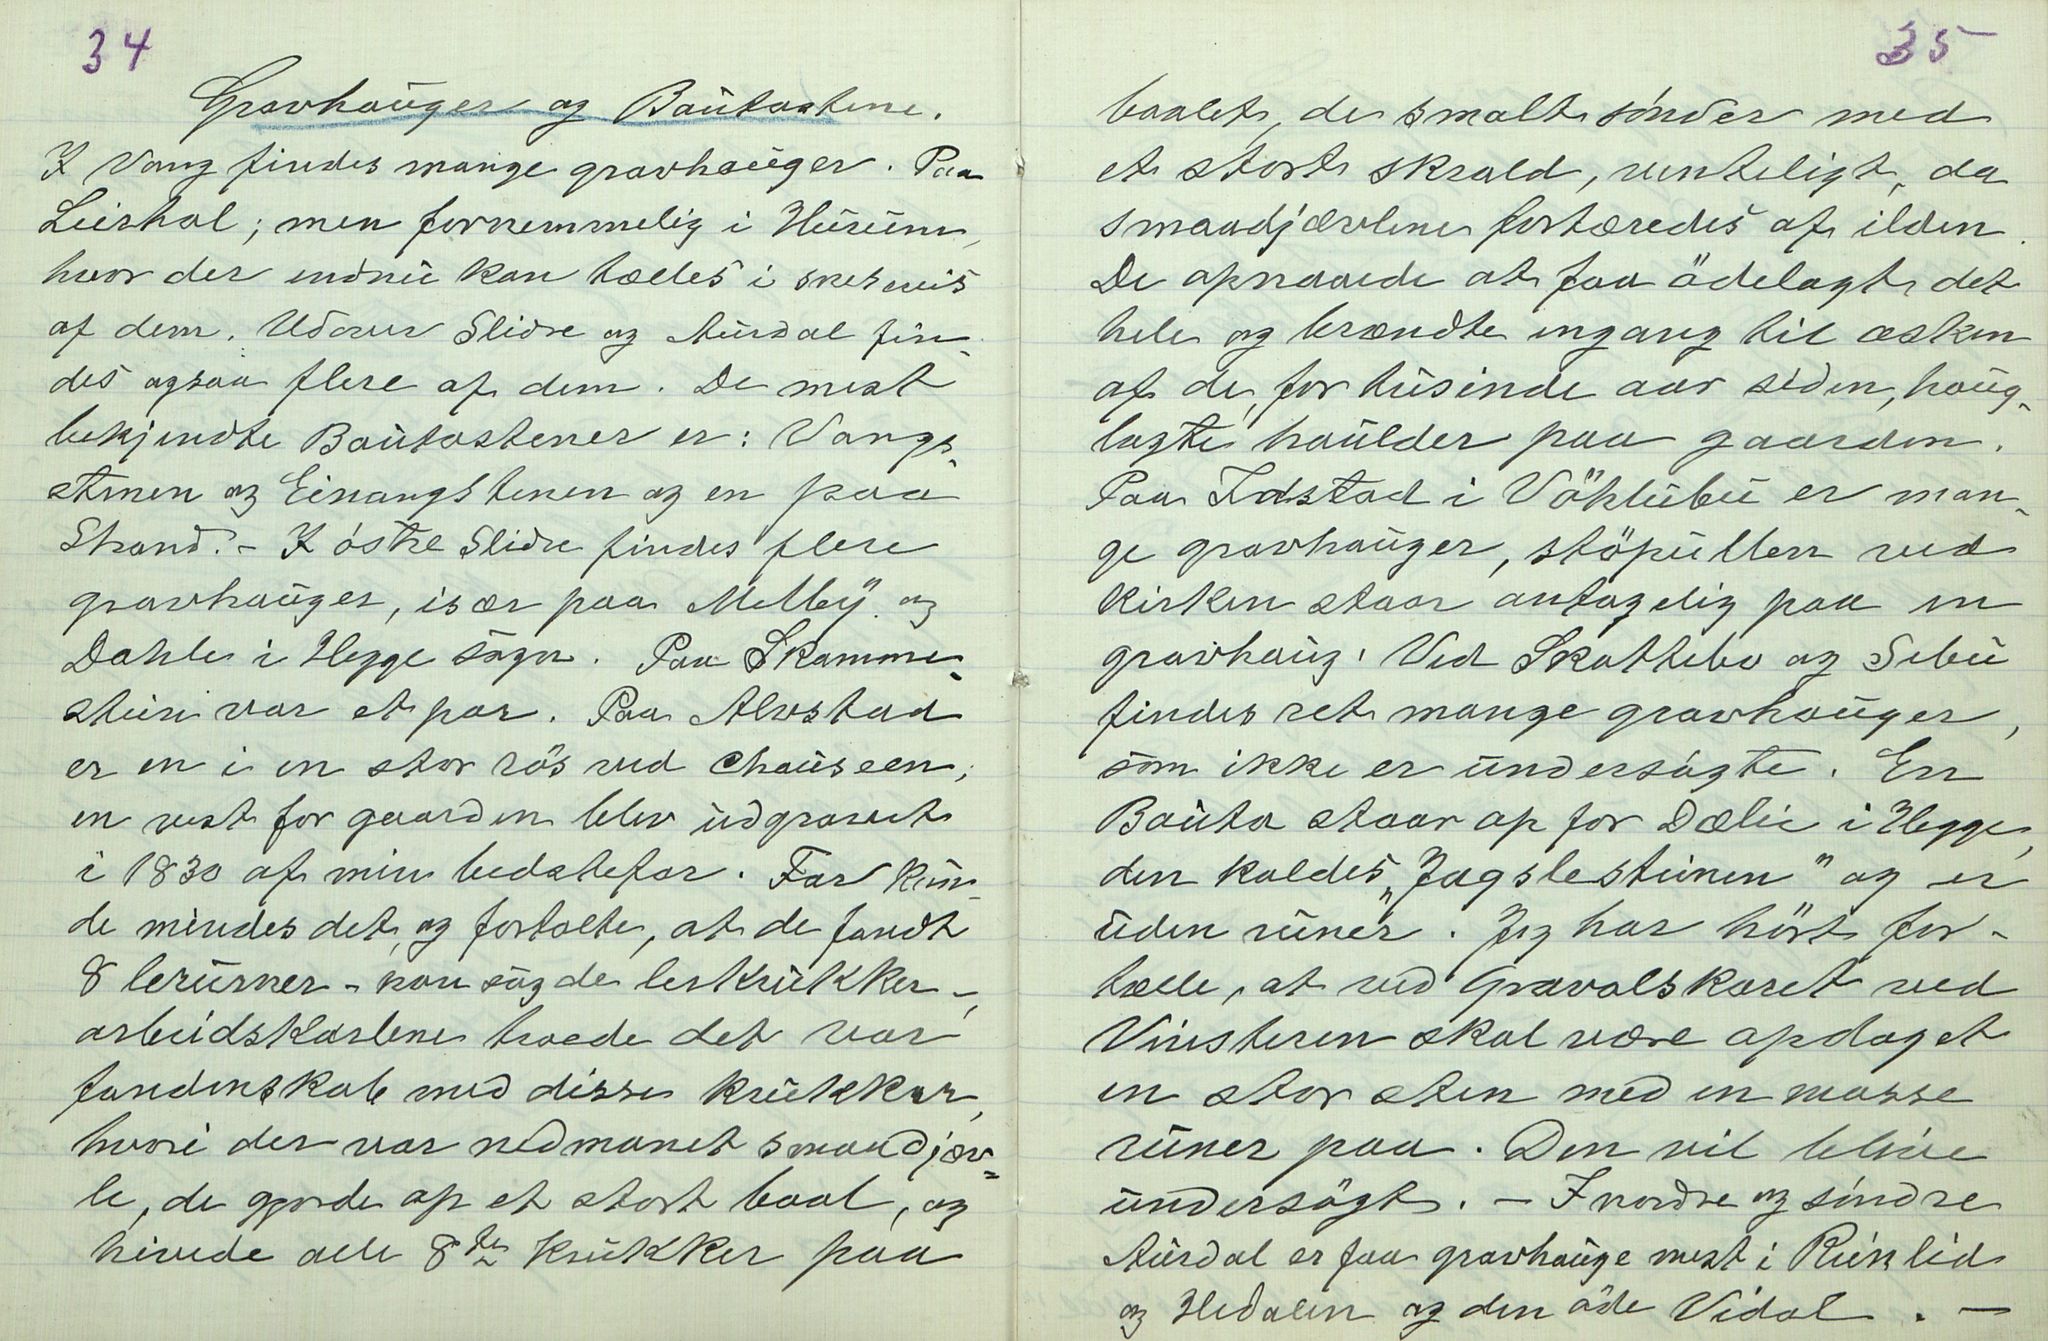 34
Gravhauger og Bautastene.
I Vang findes mange gravhauger. Paa
Leirhol; men fornemmelig i Hurum,
hvor der endnu kan tælles i snesevis
af dem. Udover Slidre og Aurdal fin-
des ogsaa flere af dem. De mest
bekjendte Bautastener er: Vangs-
stenen og Einangstenen og en paa
Strand. - I östre Slidre findes flere
gravhauger, især paa Melby og
Dahle i Hegge sogn. Paa Skamme-
stein var et par. Paa Alvstad
er en i en stor rös ved Chauseen,
en vest for gaarden blev udgravet
i 1830 af min bedstefar. Far kun-
de mindes det, og fortalte, at de fandt
8 lerurner - han sagde lerkrukker -,
arbeidskarlene troede det var
fandenskab med disse krukker,
hvori der var nedmanet smaadjæv=
le, de gjorde op et stort baal, og
hivede alle 8te krukker paa
35
baalet, de smalt sönder med
et stort skrald, venteligt, da
smaadjævlene fortæredes af ilden.
De opnaaede at faa ödelagt det
hele og brændte engang til asken
af de, for tusinde aar siden, haug-
lagte haulder paa gaarden.
Paa Idstad i Vöhlubu er man-
ge gravhauger, stöpullen ved
Kirken staar antagelig paa en
gravhaug. Ved Skattebo og Sebu
findes ret mange gravhauger,
som ikke er undersögte. En
Bauta staar op for Dælie i Hegge,
den kaldes „Jagslesteinen” og er
uden runer. Jeg har hört for-
tælle, at ved Gravolskaret ved
Vinsteren skal være opdaget
en stor sten med en masse
runer paa. Den vil blive
undersögt. - I nordre og söndre
Aurdal er faa gravhauge mest i Ruinlid
og Hedalen og den öde Vidal. -